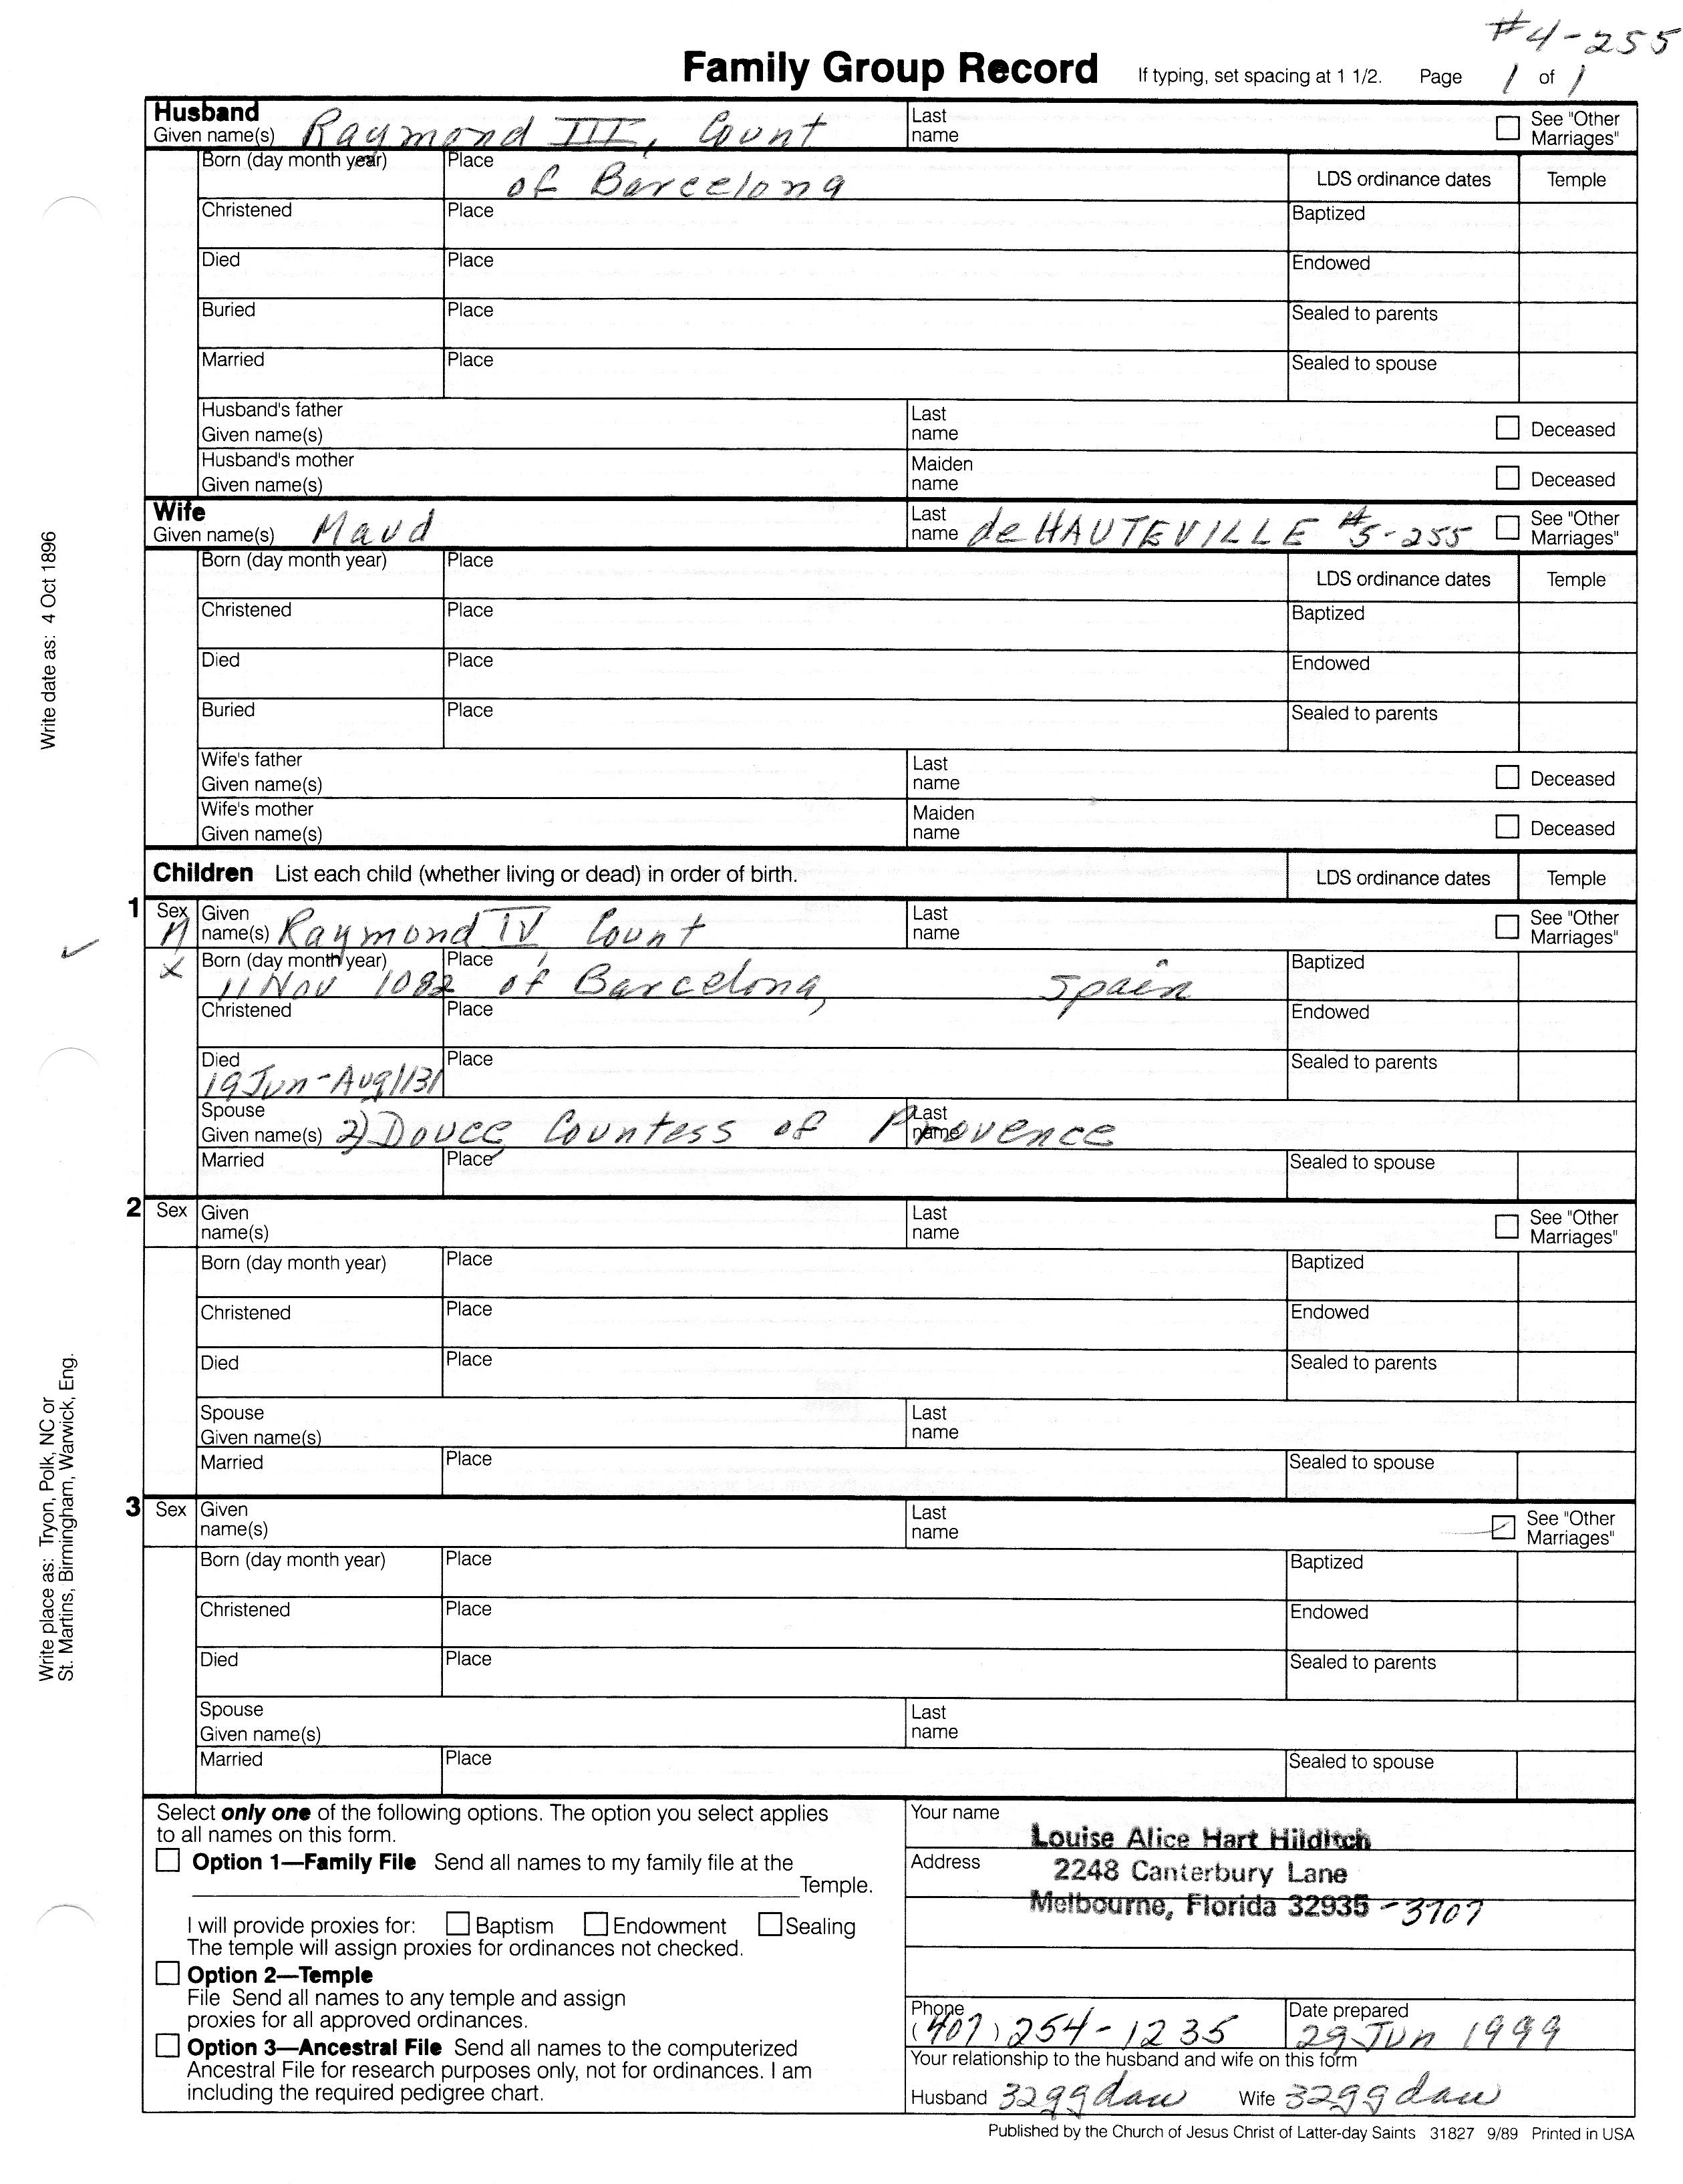 #4-255
Family Group Record If typing, set spacing at 1 1/2. Page 1 of 1
Husband
Given name(s) Raymond III, Count
Last name
See "Other Marriages"
Born (day month year) Place of Barcelona LDS ordinance dates Temple
Christened Place Baptized
Died Place Endowed
Buried Place Sealed to parents
Married Place Sealed to spouse
Husband's father
Given name(s)
Last name
Deceased
Husband's mother
Given name(s)
Maiden name
Deceased
Wife
Given name(s) Maud
Last name deHAUTEVILLE #5-255
See "Other Marriages"
Born (day month year) Place LDS ordinance dates Temple
Christened Place Baptized
Died Place Endowed
Buried Place Sealed to parents
Wife's father
Given name(s)
Last name
Deceased
Wife's mother
Given name(s)
Maiden name
Deceased
Children List each child (whether living or dead) in order of birth. LDS ordinance dates Temple
1 Sex M Given name(s) Raymond IV, Count
Last name
See "Other Marriages"
X Born (day month year) 11 Nov 1082 Place of Barcelona, Spain Baptized
Christened Place Endowed
Died 19 Jun-Aug 1131 Place Sealed to parents
Spouse
Given name(s) 2) Douce, Countess of Provence
Last name
Married Place Sealed to spouse
2 Sex Given name(s)
Last name
See "Other Marriages"
Born (day month year) Place Baptized
Christened Place Endowed
Died Place Sealed to parents
Spouse
Given name(s)
Last name
Married Place Sealed to spouse
3 Sex Given name(s)
Last name
See "Other Marriages"
Born (day month year) Place Baptized
Christened Place Endowed
Died Place Sealed to parents
Spouse
Given name(s)
Last name
Married Place Sealed to spouse
Select only one of the following options. The option you select applies
to all names on this form.
Option 1—Family File Send all names to my family file at the
Temple.
I will provide proxies for: Baptism Endowment Sealing
The temple will assign proxies for ordinances not checked.
Option 2—Temple
File Send all names to any temple and assign
proxies for all approved ordinances.
Option 3—Ancestral File Send all names to the computerized
Ancestral File for research purposes only, not for ordinances. I am
including the required pedigree chart.
Your name
Louise Alice Hart Hilditch
Address
2248 Canterbury Lane
Melbourne, Florida 32935-3707
Phone
(407) 254-1235
Date prepared
29 Jun 1999
Your relationship to the husband and wife on this form
Husband 32ggdau Wife 32ggdau
Published by the Church of Jesus Christ of Latter-day Saints 31827 9/89 Printed in USA
Write date as: 4 Oct 1896
Write place as: Tryon, Polk, NC or
St. Martins, Birmingham, Warwick, Eng.